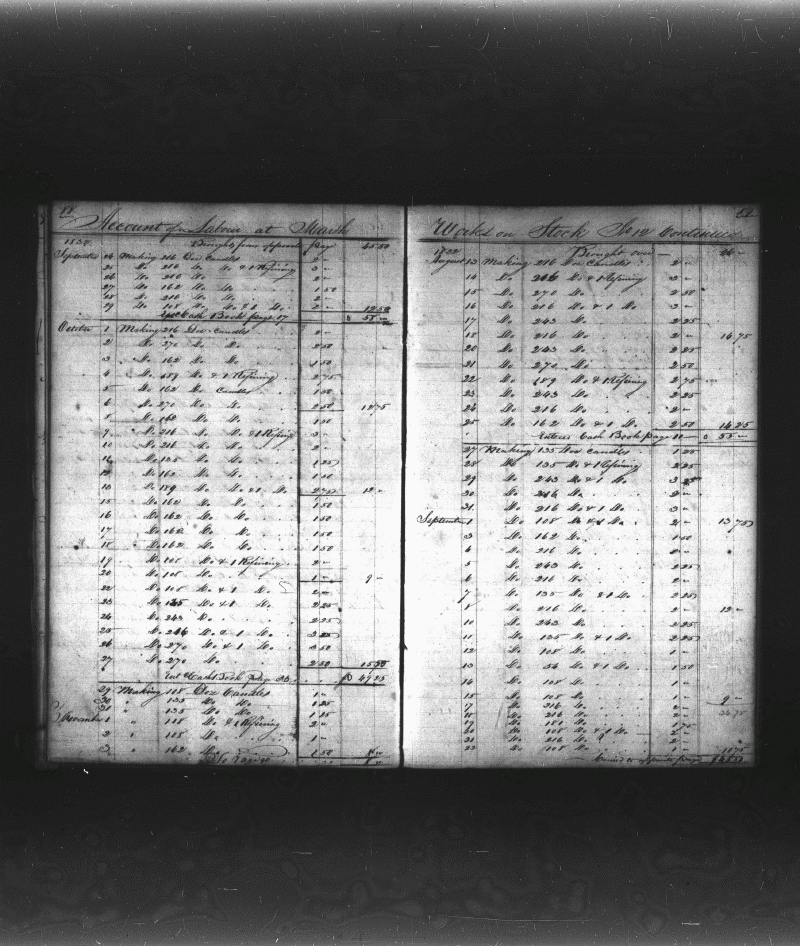 Account of Labour at March
1832 Brought from opposite page 45 50
September 24 Making 216 Doz Candles 2 "
25 Do 216 Do Do & 1 Refining 3 "
26 Do 216 Do 2 "
27 Do 162 Do Do 1 50
28 Do 216 Do Do 2 "
29 Do 108 Do Do & 1 Do 2 " 12 50
Cash Book page 17 $ 58 "
October 1 Making 216 Doz Candles 2 "
2 Do 270 Do Do 2 50
3 Do 162 Do Do 1 50
4 Do 189 Do & 1 Refining 2 75
5 Do 162 Do Candles 1 50
6 Do 270 Do Do 2 50 12 75
8 Do 162 Do Do 1 50
9 Do 216 Do Do & 1 Refining 3 "
10 Do 216 Do Do 2 "
11 Do 135 Do Do 1 25
12 Do 162 Do Do 1 50
13 Do 189 Do Do & 1 Do 2 75 12 "
15 Do 162 Do Do 1 50
16 Do 162 Do Do 1 50
17 Do 162 Do Do 1 50
18 Do 162 Do Do 1 50
19 Do 108 Do & 1 Refining 2 "
20 Do 108 Do 1 " 9 "
22 Do 108 Do & 1 Do 2 "
23 Do 135 Do & 1 Do 2 25
24 Do 243 Do 2 25
25 Do 216 Do & 1 Do
26 Do 270 Do & 1 Do 3 50
27 Do 270 Do 2 50 15 50
Ent Cash Book page 23 $ 49 25
29 Making 108 Doz Candles 1 "
30 " 135 Do Do 1 25
31 " 135 Do Do 1 25
November 1 " 108 Do & 1 Refining 2 "
2 " 108 Do 1 "
3 " 162 Do 1 50 8 "
Works on Stock No 12 Continued
1832 Brought over 26 "
August 13 Making 216 Doz Candles 2 "
14 Do 216 Do & 1 Refining 3 "
15 Do 270 Do 2 50
16 Do 216 Do & 1 Do 3 "
17 Do 243 Do 2 25
18 Do 216 Do 2 " 14 75
20 Do 243 Do 2 25
21 Do 270 Do 2 50
22 Do 189 Do & 1 Refining 2 75
23 Do 243 Do 2 25
24 Do 216 Do 2 "
25 Do 162 Do & 1 Do 2 50 14 25
Entered Cash Book page 11 $ 55 "
27 Making 135 Doz Candles 1 25
28 Do 135 Do & 1 Refining 2 25
29 Do 243 Do & 1 Do 3 25
30 Do 216 Do 2 "
31 Do 216 Do & 1 Do 3 "
September 1 Do 108 Do & 1 Do 2 " 13 75
3 Do 162 Do 1 50
4 Do 216 Do 2 "
5 Do 243 Do 2 25
6 Do 216 Do 2 "
7 Do 135 Do & 1 Do 2 25
8 Do 216 Do 2 " 12 "
10 Do 243 Do 2 25
11 Do 135 Do & 1 Do 2 25
12 Do 108 Do 1 "
13 Do 54 Do & 1 Do 1 50
14 Do 108 Do 1 "
15 Do 108 Do 1 " 9 "
17 Do 216 Do 2 "
18 Do 216 Do 2 "
19 Do 1 75
20 Do 108 Do & 1 Do 2 "
21 Do 216 Do 2 "
22 Do 108 Do 1 " 10 75
Carried to opposite page $ 45 50